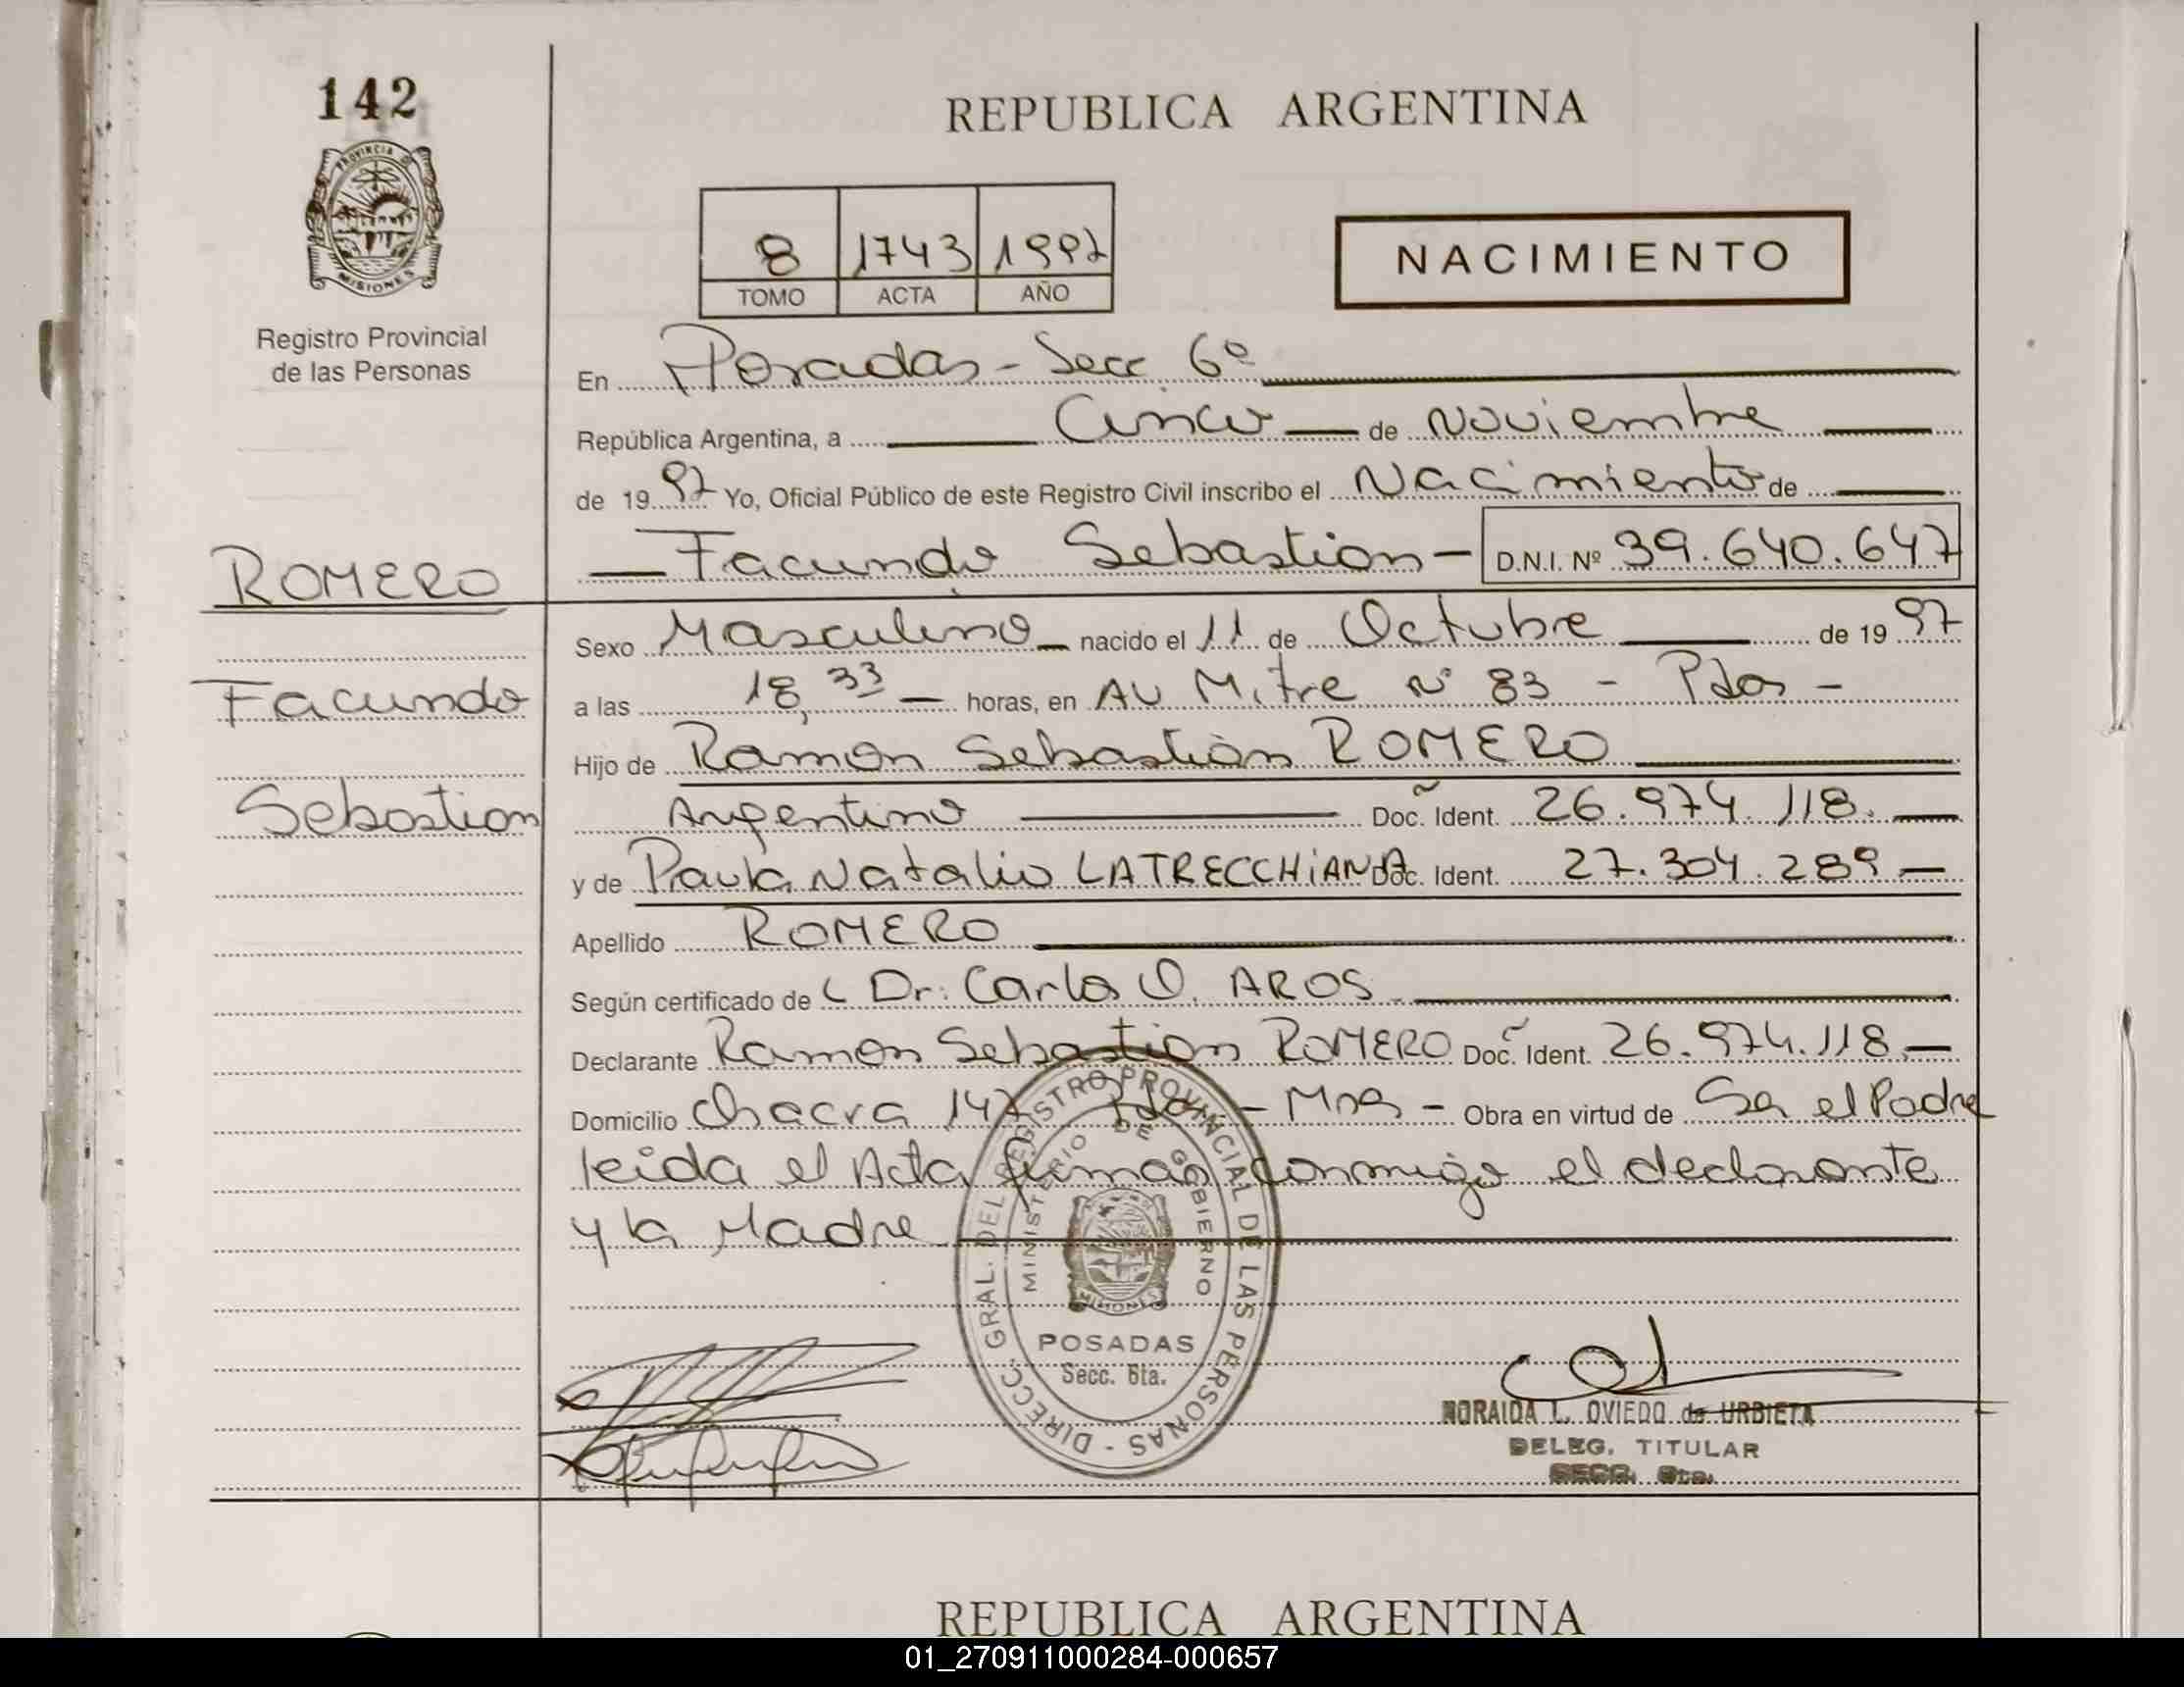 142
PROVINCIA D
MISIONES
Registro Provincial
de las Personas
ROMERO
Facundo
Sebastian
REPUBLICA ARGENTINA
8 1743 1997
TOMO ACTA AÑO
NACIMIENTO
En Posadas - Secc 6º
República Argentina, a Cinco de Noviembre
de 1997 Yo, Oficial Público de este Registro Civil inscribo el Nacimiento de
Facundo Sebastian - D.N.I. Nº 39.640.647
Sexo Masculino nacido el 11 de Octubre de 1997
a las 18,33 horas, en AV Mitre Nº 83 - Pdas -
Hijo de Ramon Sebastián ROMERO
Argentino Doc. Ident. 26.974.118.
y de Paula Natalia LATRECCHiANA Doc. Ident. 27.304.289
Apellido ROMERO
Según certificado de Dr: Carlos O. AROS
Declarante Ramon Sebastian ROMERO Doc. Ident. 26.974.118.
Domicilio Chacra 147 Pdas - Mns - Obra en virtud de Ser el Padre
leida el Acta firman conmigo el declarante
y la Madre
DIRECC. GRAL. DEL REGISTRO PROVINCIAL DE LAS PERSONAS -
MINISTERIO DE GOBIERNO
MISIONES
POSADAS
Secc. 6ta.
NORAIDA L. OVIEDO de URBIETA
DELEG. TITULAR
SECC. 6ta.
REPUBLICA ARGENTINA
01_270911000284-000657